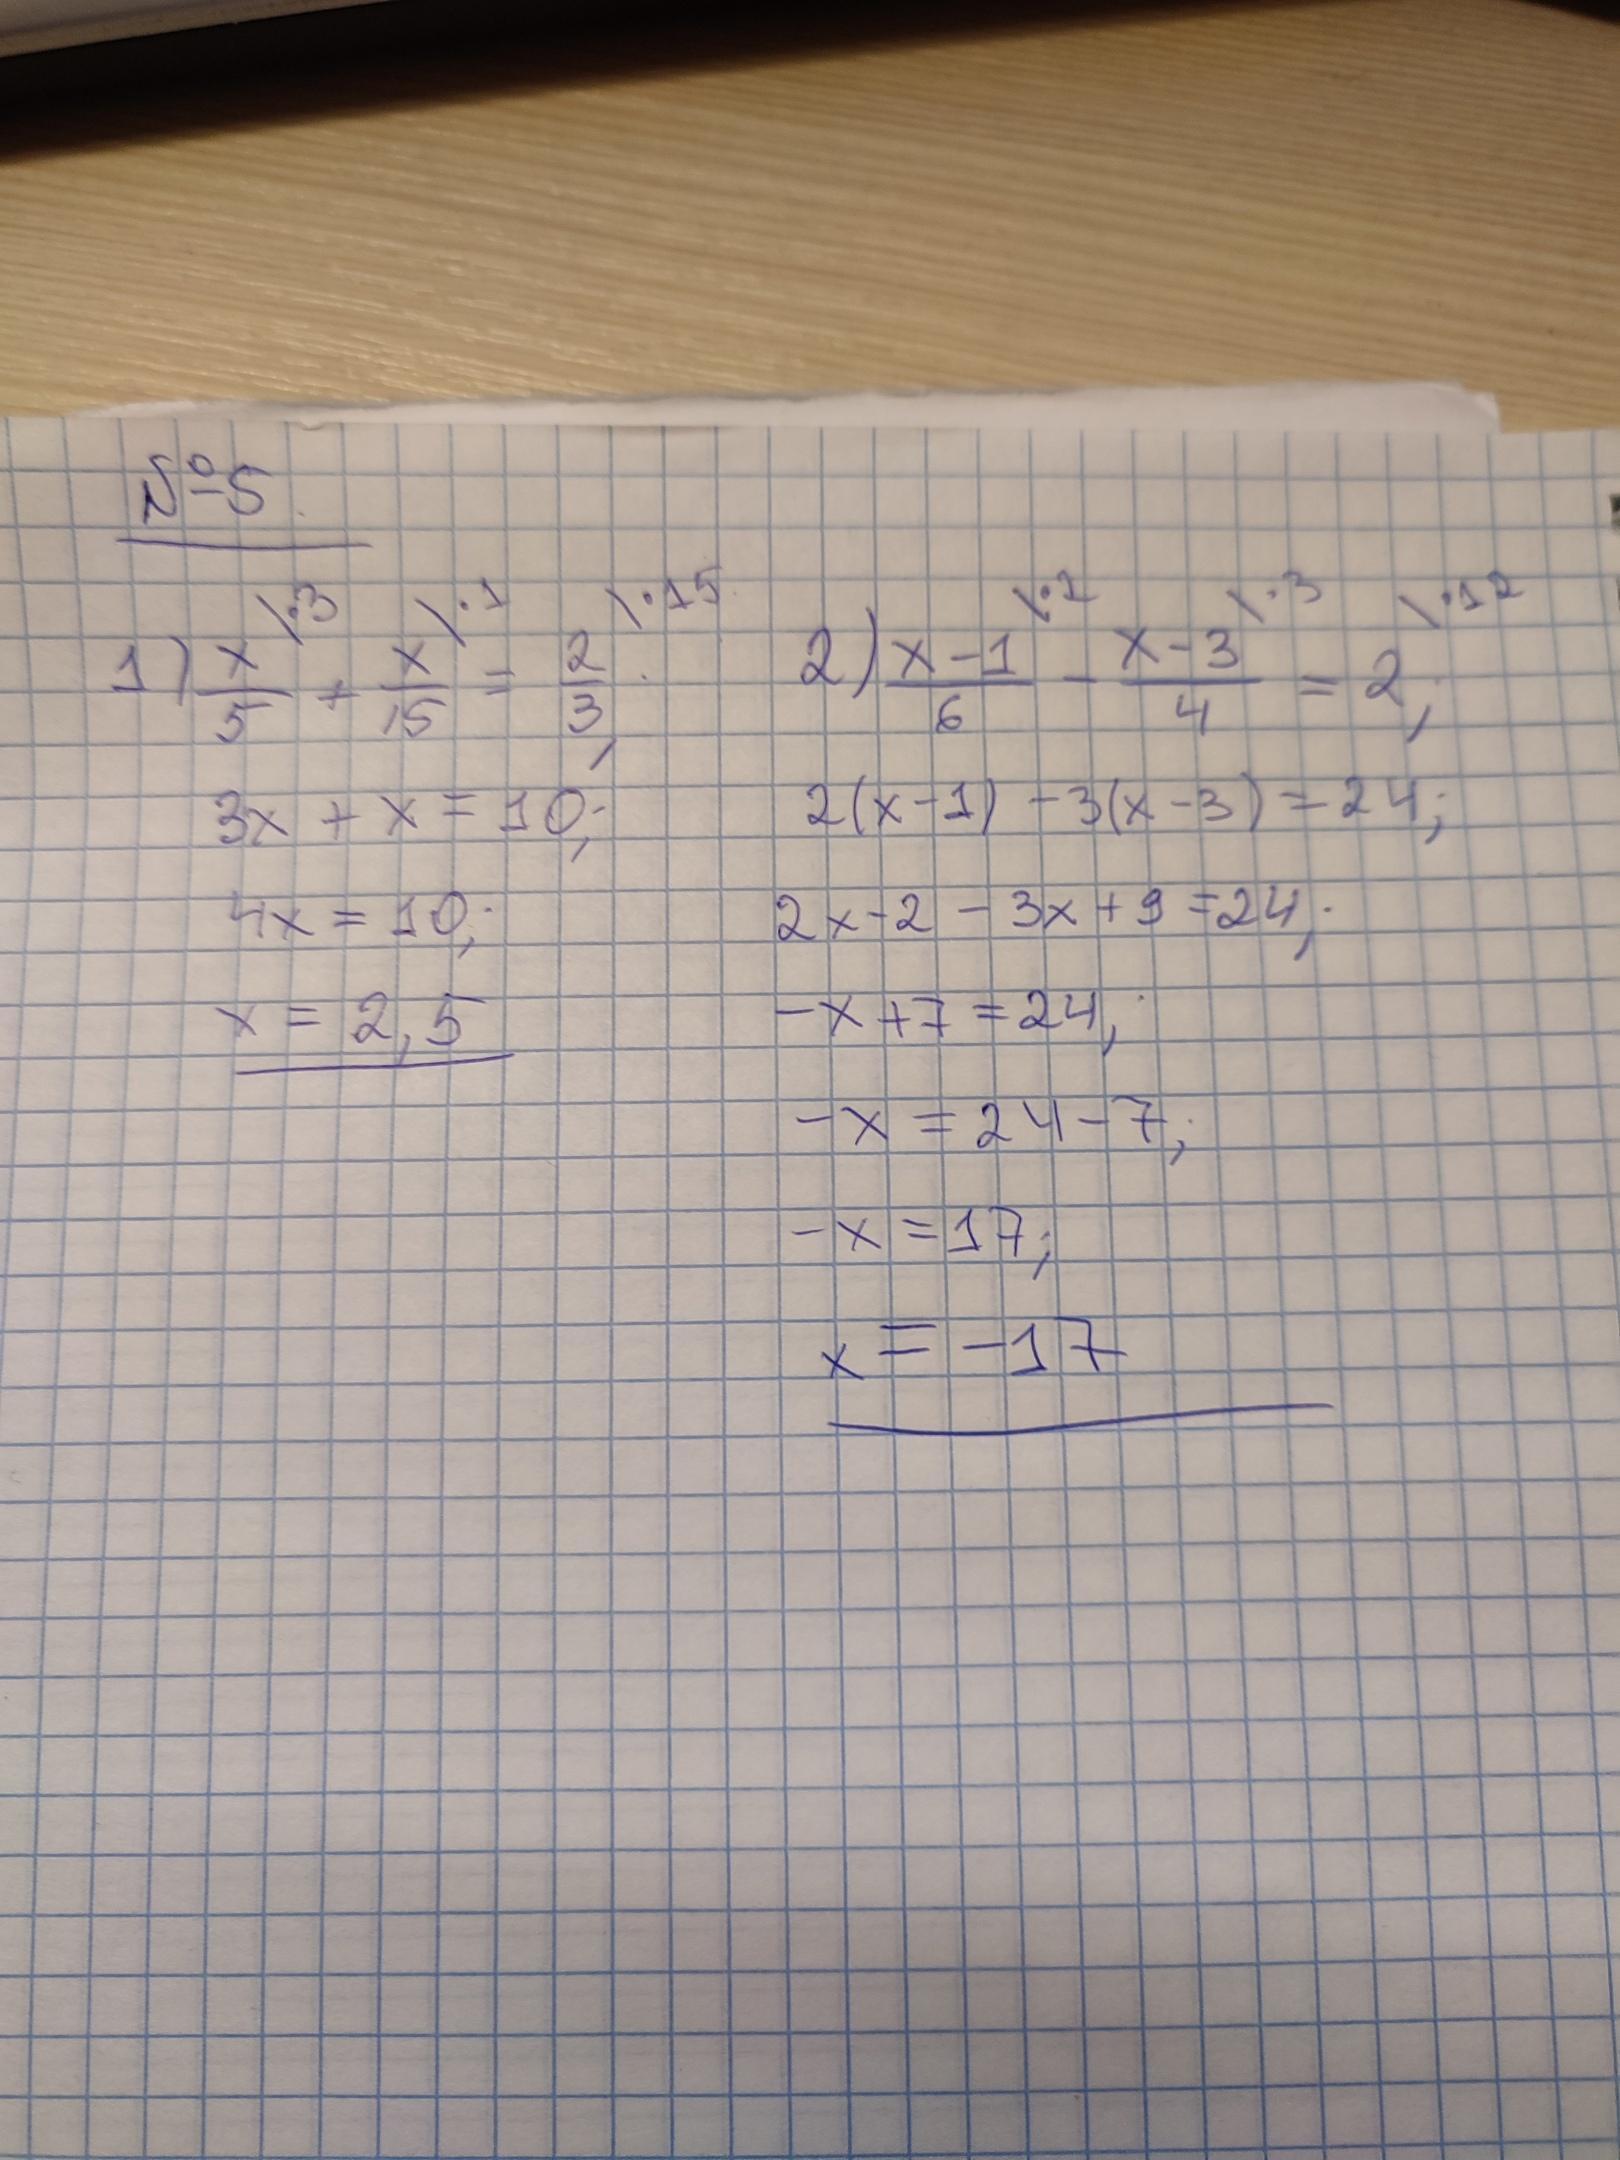 №5
1) x/5 \·3 + x/15 \·1 = 2/3 \·15;
3x + x = 10;
4x = 10;
x = 2,5
2) x-1/6 \·2 - x-3/4 \·3 = 2 \·12;
2(x-1) - 3(x-3) = 24;
2x-2 - 3x+9 = 24;
-x+7 = 24;
-x = 24-7;
-x = 17;
x = -17